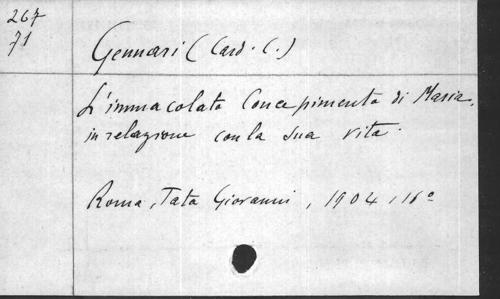 267
71
Gennari (Card. C.)
L'immacolato Concepimento di Maria,
in relazione con la sua vita.
Roma, Tata Giovanni, 1904, 16°